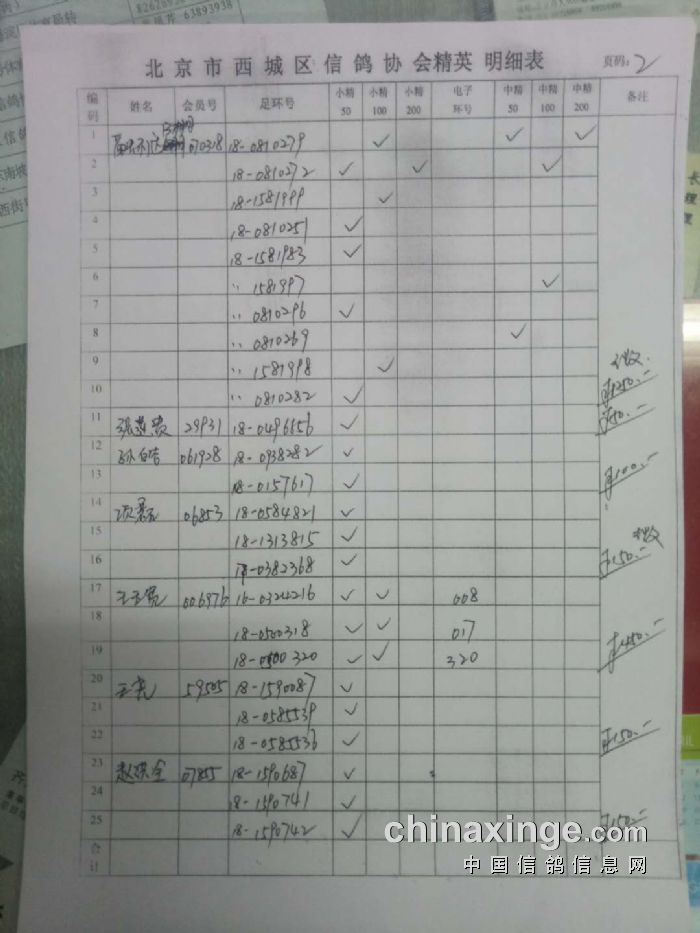 北京市西城区信鸽协会精英 明细表 页码: 2
编码 姓名 会员号 足环号 小精50 小精100 小精200 电子环号 中精50 中精100 中精200 备注
1 070318 18-0810279 ✓ ✓ ✓
2 18-0810272 ✓ ✓ ✓
3 18-1581999 ✓
4 18-0810251 ✓
5 18-1581983 ✓
6 〃 1581997 ✓
7 〃 0810296 ✓
8 〃 0810269 ✓
9 〃 1581998 ✓
10 〃 0810282 ✓
11 29931 18-0496556 ✓ ¥50.-
12 061928 18-0938282 ✓
13 18-0157617 ✓ ¥100.-
14 06853 18-0584821 ✓
15 18-1313815 ✓
16 18-0382368 ✓ ¥150.-
17 006976 16-0324216 ✓ ✓ 008
18 18-0500318 ✓ ✓ 017
19 18-0500320 ✓ ✓ 320 ¥450.-
20 59505 18-1590087 ✓
21 18-0585539 ✓
22 18-0585536 ✓ ¥150.-
23 07855 18-1590687 ✓
24 18-1590741 ✓
25 18-1590742 ✓
合计
chinaxinge.com
中国信鸽信息网
63893938